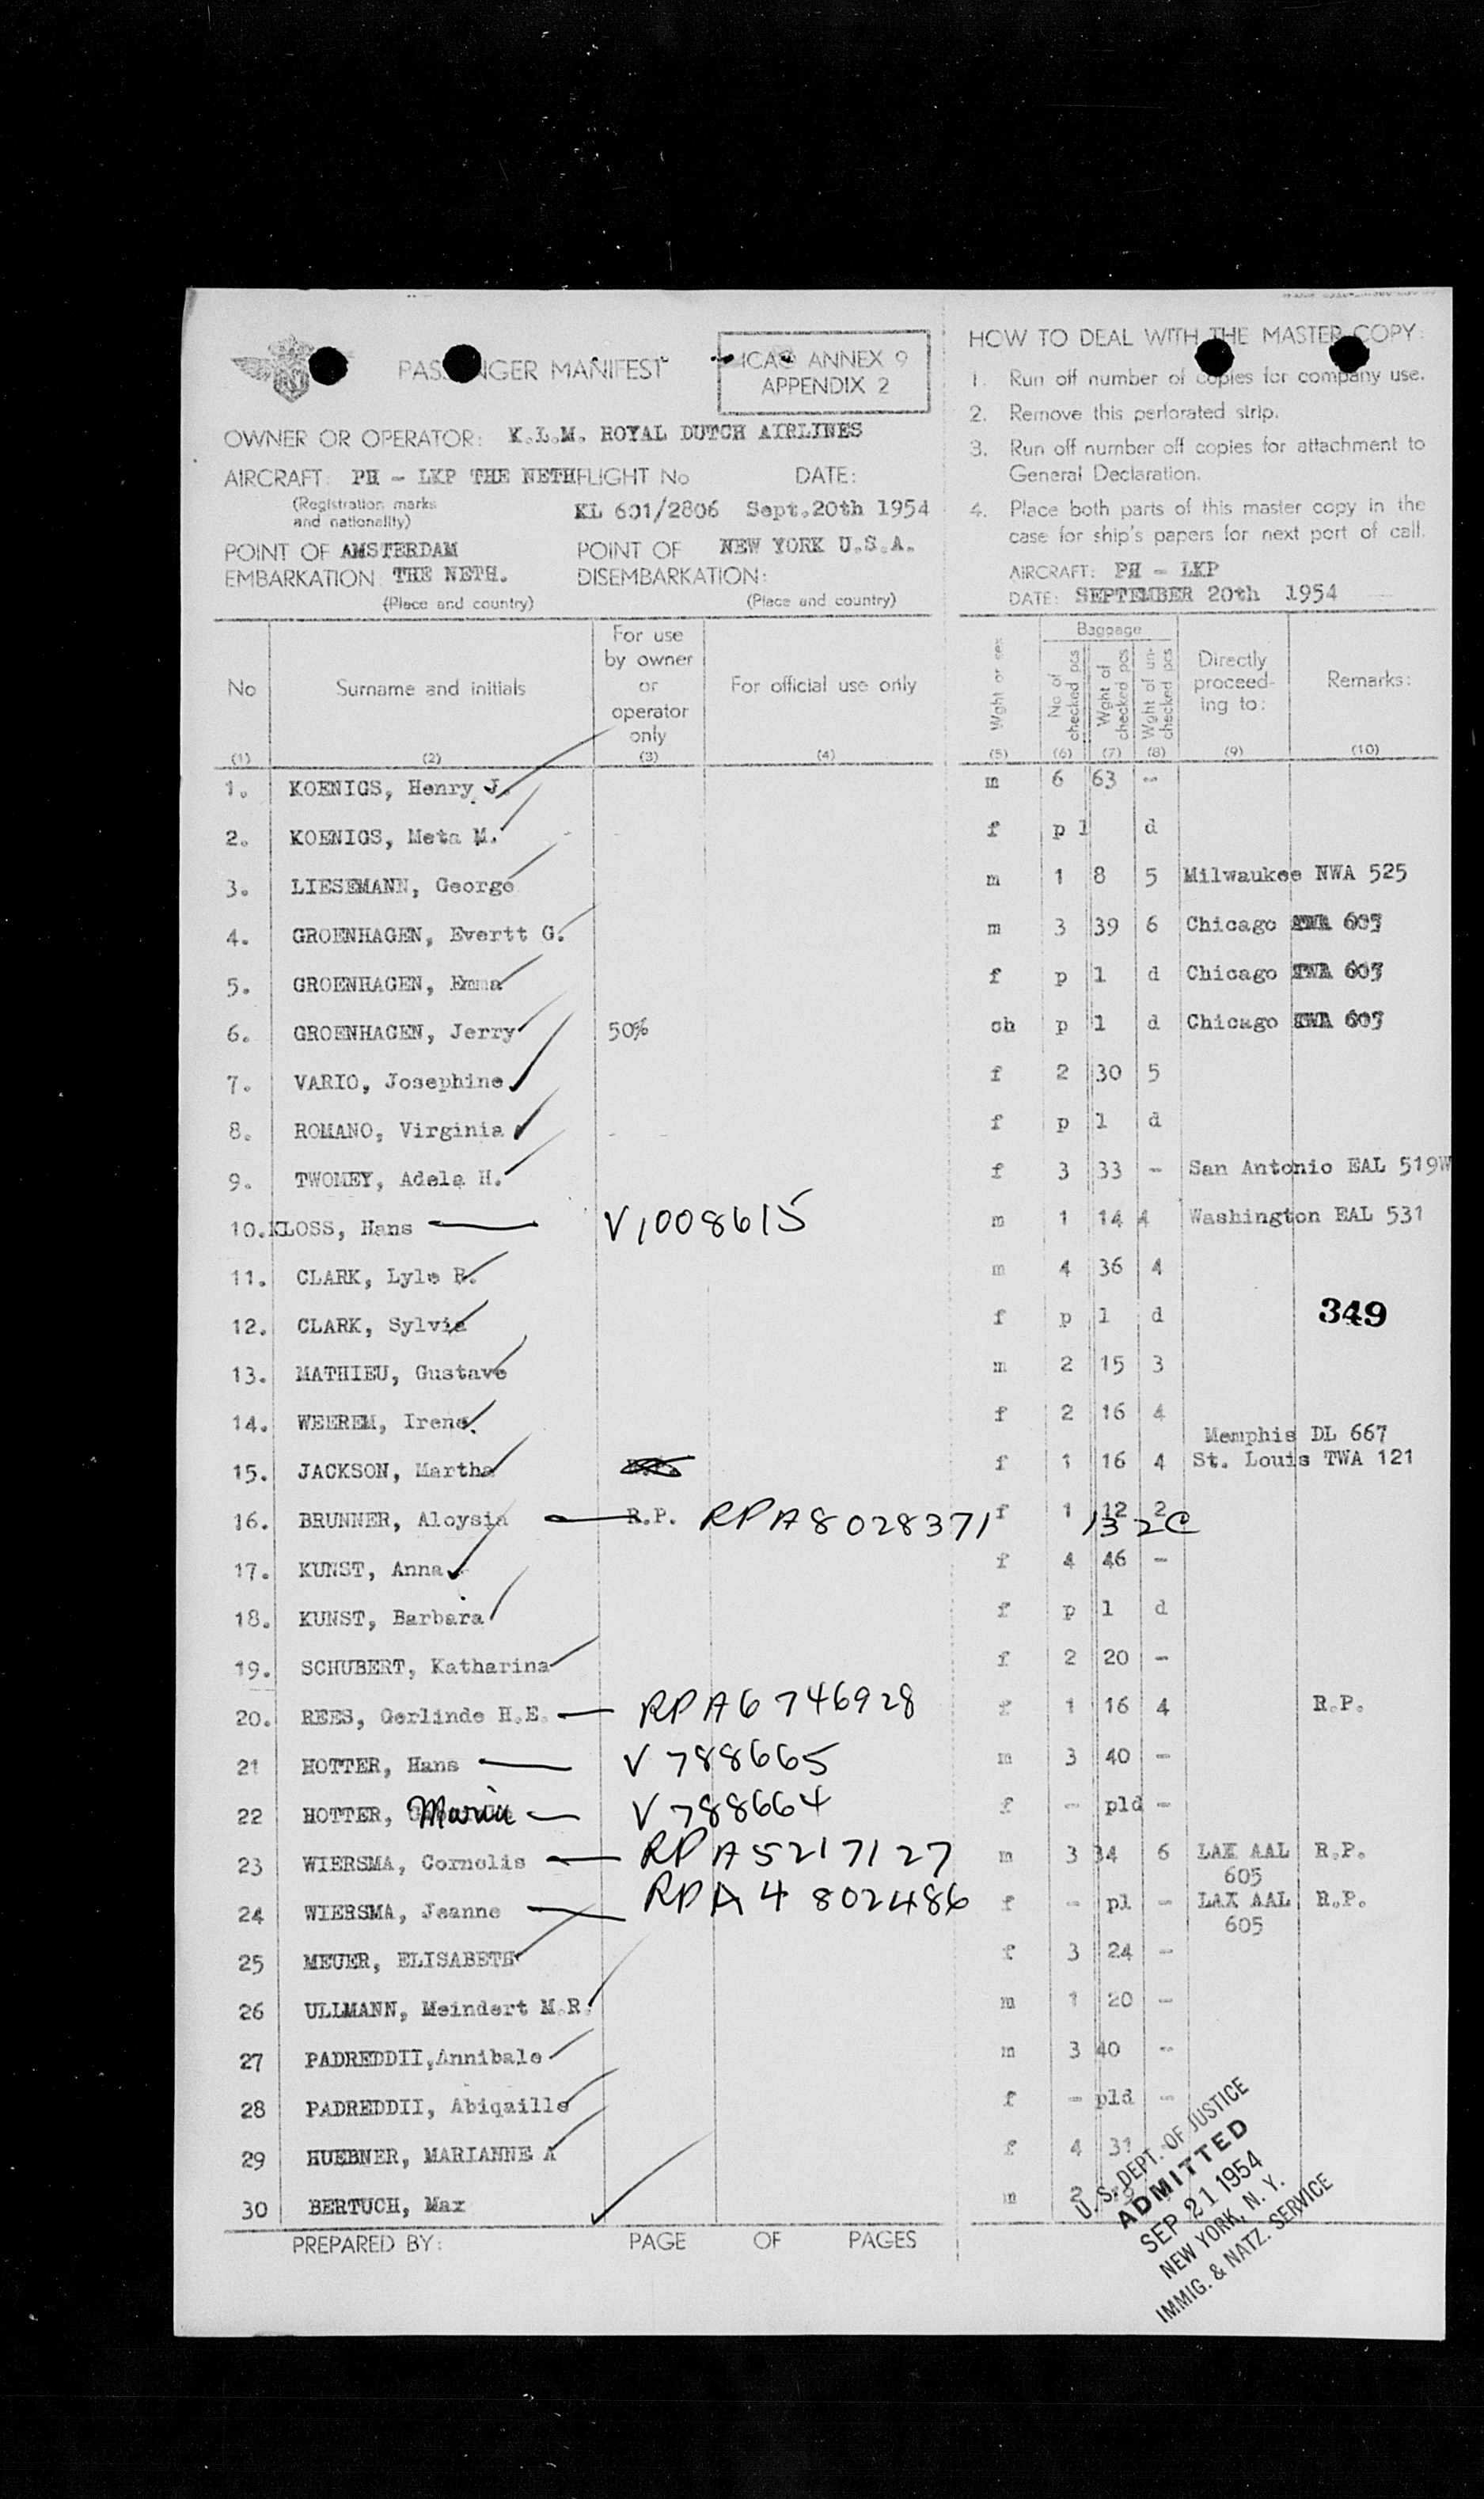 PASSENGER MANIFEST
ICAO ANNEX 9
APPENDIX 2
OWNER OR OPERATOR: K.L.M. ROYAL DUTCH AIRLINES
AIRCRAFT: PH - LKP THE NETH FLIGHT No DATE:
(Registration marks and nationality) KL 601/2806 Sept.20th 1954
POINT OF EMBARKATION: AMSTERDAM THE NETH. POINT OF DISEMBARKATION: NEW YORK U.S.A.
(Place and country) (Place and country)
HOW TO DEAL WITH THE MASTER COPY:
1. Run off number of copies for company use.
2. Remove this perforated strip.
3. Run off number off copies for attachment to
General Declaration.
4. Place both parts of this master copy in the
case for ship's papers for next port of call.
AIRCRAFT: PH - LKP
DATE: SEPTEMBER 20th 1954
No Surname and initials For use by owner or operator only For official use only Wght or sex Baggage No of checked pcs Wght of checked pcs Wght of un-checked pcs Directly proceed-ing to: Remarks:
(1) (2) (3) (4) (5) (6) (7) (8) (9) (10)
1. KOENIGS, Henry J. m 6 63 -
2. KOENIGS, Meta M. f p l d
3. LIESEMANN, George m 1 8 5 Milwaukee NWA 525
4. GROENHAGEN, Evertt G. m 3 39 6 Chicago
5. GROENHAGEN, Emma f p l d Chicago
6. GROENHAGEN, Jerry 50% ch p l d Chicago
7. VARIO, Josephine f 2 30 5
8. ROMANO, Virginia f p l d
9. TWOMEY, Adele H. f 3 33 - San Antonio EAL 519W
10. KLOSS, Hans V1008615 m 1 14 4 Washington EAL 531
11. CLARK, Lyle R. m 4 36 4
12. CLARK, Sylvia f p l d
349
13. MATHIEU, Gustave m 2 15 3
14. WEEREM, Irene f 2 16 4
Memphis DL 667
15. JACKSON, Martha f 1 16 4 St. Louis TWA 121
16. BRUNNER, Aloysia R.P. RPA8028371 f 1 12 2
13 2C
17. KUNST, Anna f 4 46 -
18. KUNST, Barbara f p l d
19. SCHUBERT, Katharina f 2 20 -
20. REES, Gerlinde H.E. RPA6746928 f 1 16 4 R.P.
21 HOTTER, Hans V788665 m 3 40 -
22 HOTTER, Maria V788664 f - pld -
23 WIERSMA, Cornelis RPA5217127 m 3 34 6 LAX AAL 605 R.P.
24 WIERSMA, Jeanne RPA4802486 f - pl - LAX AAL 605 R.P.
25 MEUER, ELISABETH f 3 24 -
26 ULLMANN, Meindert M.R. m 1 20 -
27 PADREDDII,Annibale m 3 40 -
28 PADREDDII, Abigaille f - pld -
29 HUEBNER, MARIANNE A f 4 31
30 BERTUCH, Max m 2
PREPARED BY: PAGE OF PAGES
U. S. DEPT. OF JUSTICE
ADMITTED
SEP 21 1954
NEW YORK, N. Y.
IMMIG. & NATZ. SERVICE